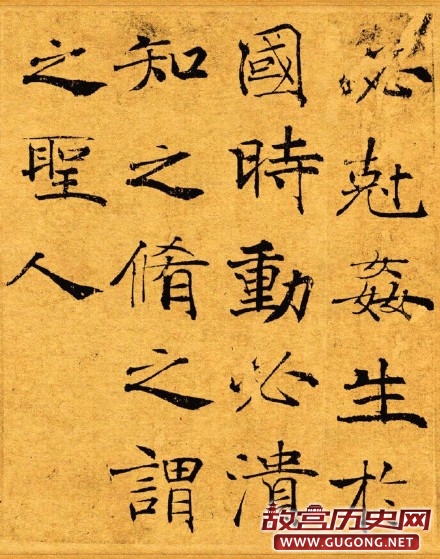 必尅姦生於
國時動必潰
知之脩之謂
之聖人
故宫历史网
WWW.GUGONG.NET